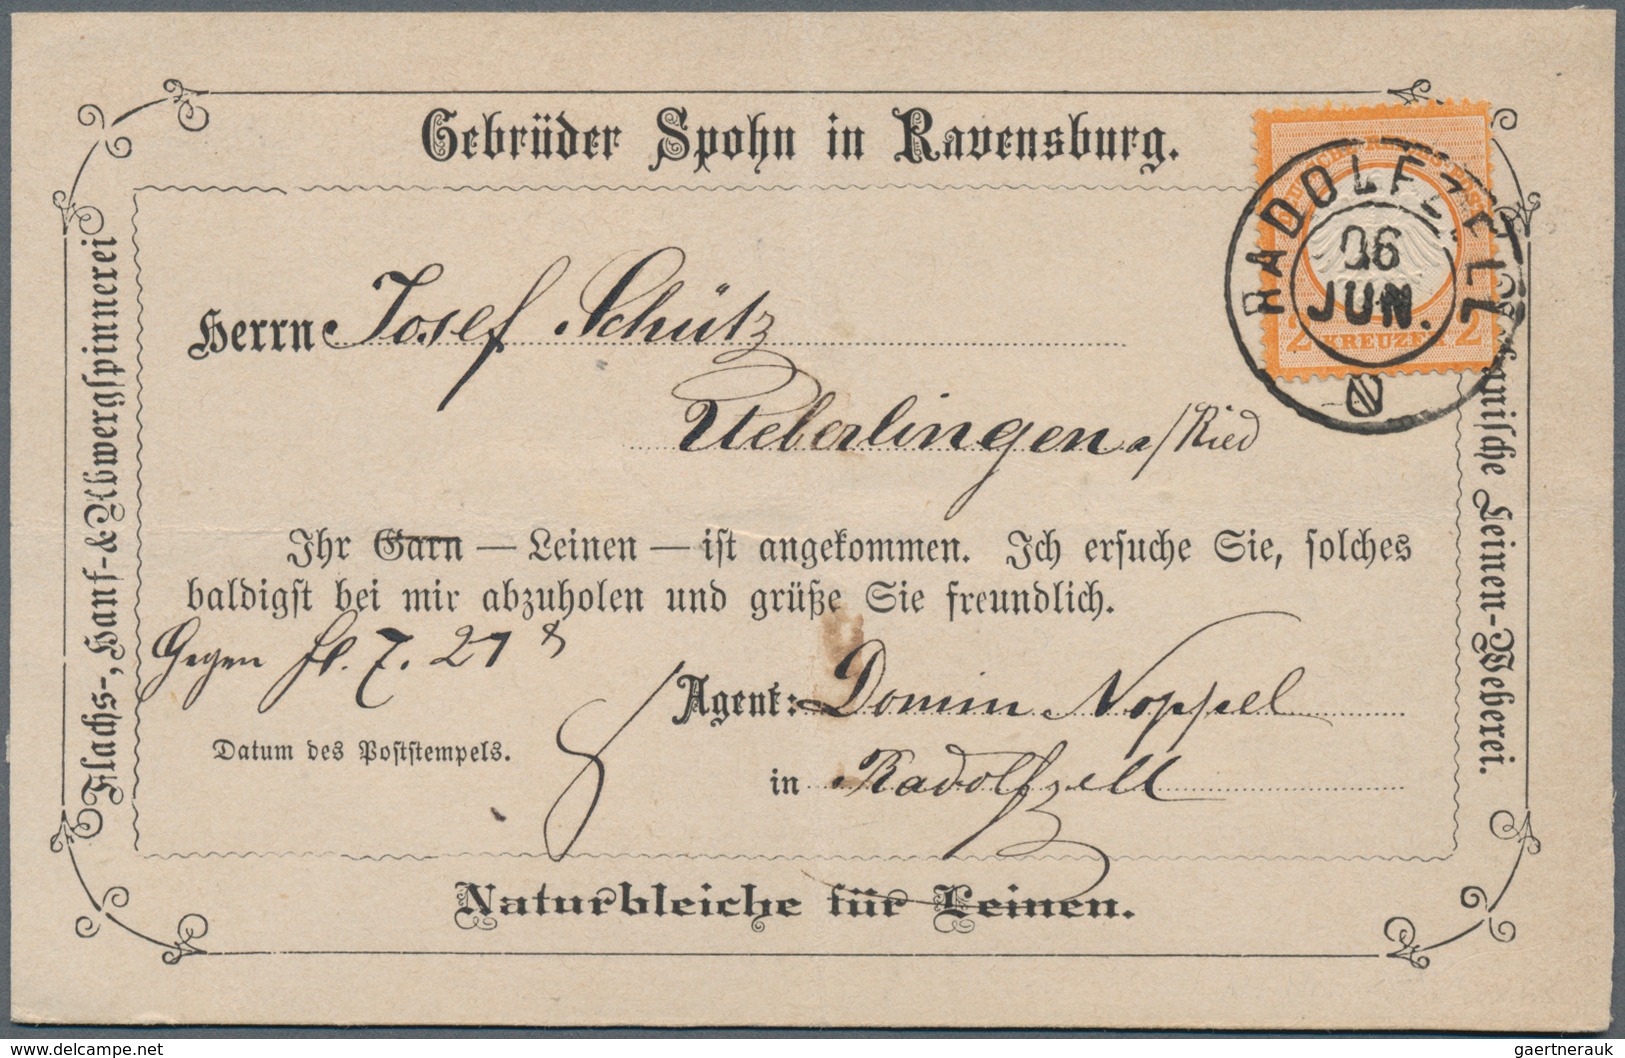 Gebrüder Spohn in Ravensburg.
Flachs-, Hanf- & Abwergspinnerei
Mechanische Leinen-Weberei.
DEUTSCHE REICHS-POST
2 KREUZER 2
RADOLFZELL
06
JUN.
Herrn Josef Schütz
Ueberlingen a/Ried
Ihr Garn — Leinen — ist angekommen. Ich ersuche Sie, solches
baldigst bei mir abzuholen und grüße Sie freundlich.
Gegen fl. 7. 27 x
Agent: Domin Noppel
Datum des Poststempels.
in Radolfzell
Naturbleiche für Leinen.
www.delcampe.net
gaertnerauk